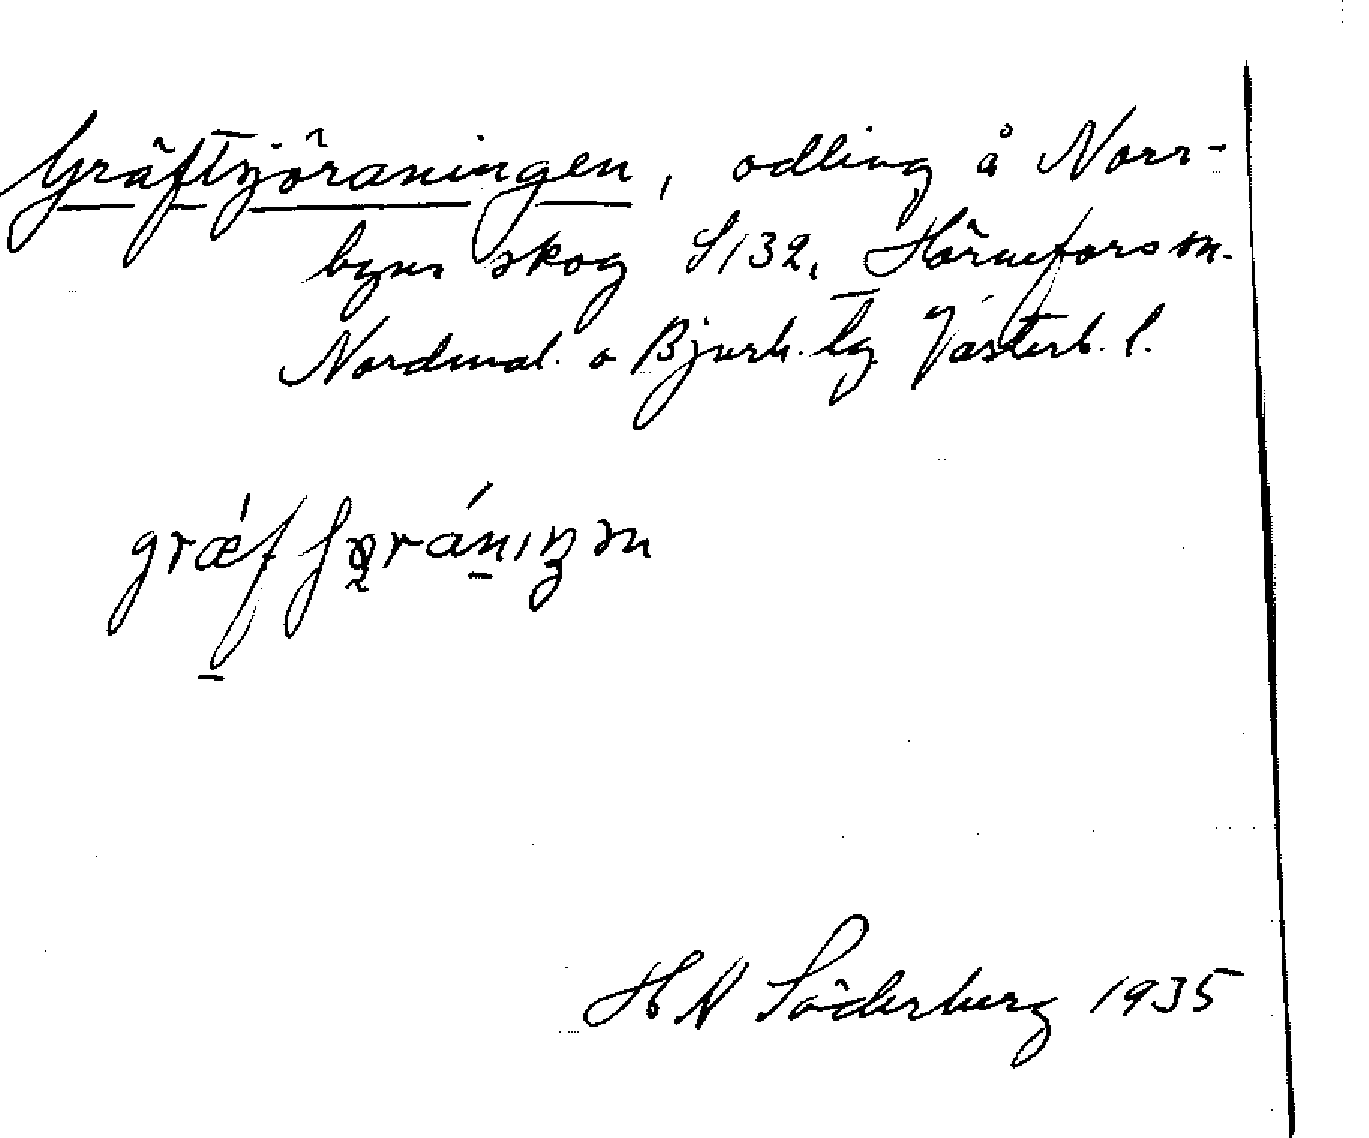 Gräftjöraningen, odling å Norr-
byns skog S132, Hörnefors sn.
Nordmal. o Bjurh. tg Västerb. l.
H N Söderberg 1935